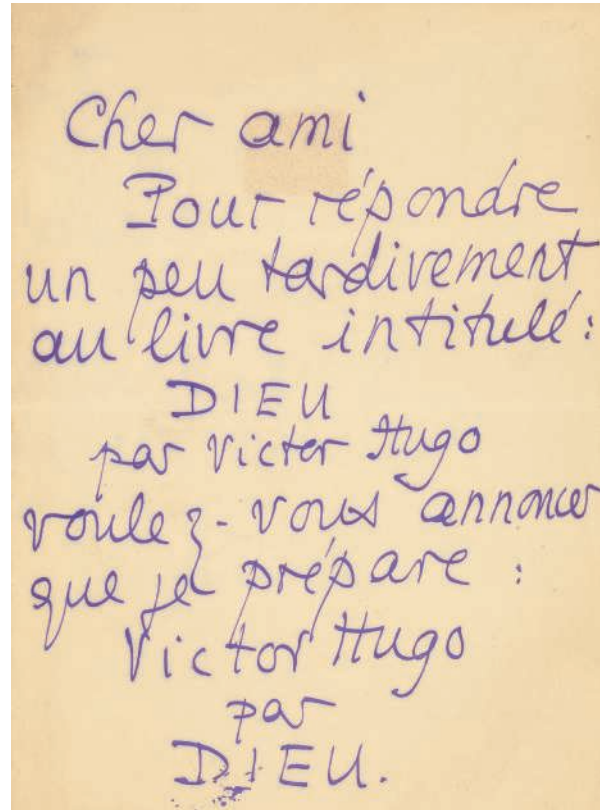 Cher ami
Pour répondre
un peu tardivement
au livre intitulé :
DIEU
par Victor Hugo
voulez-vous annoncer
que je prépare :
Victor Hugo
par
DIEU.